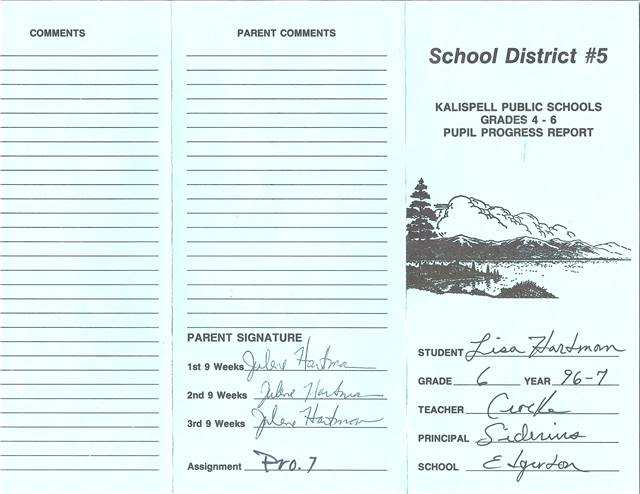 COMMENTS
PARENT COMMENTS
PARENT SIGNATURE
1st 9 Weeks Julene Hartman
2nd 9 Weeks Julene Hartman
3rd 9 Weeks Julene Hartman
Assignment Pro. 7
School District #5
KALISPELL PUBLIC SCHOOLS
GRADES 4 - 6
PUPIL PROGRESS REPORT
STUDENT Lisa Hartman
GRADE 6 YEAR 96-7
TEACHER
PRINCIPAL Siderius
SCHOOL Edgerton